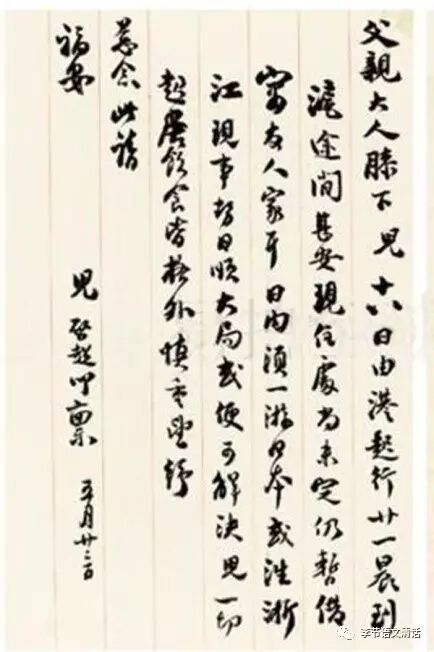 父親大人膝下 兒十八日由港起行廿一晨到
滬途間甚安現住處尚未定仍暫借
寓友人家耳日內須一游日本或往浙
江現事勢日順大局或便可解決兒一切
起居飲食皆格外慎重望紓
慈念此請
福安
兒啓超叩稟 五月廿二日
季节语文清话